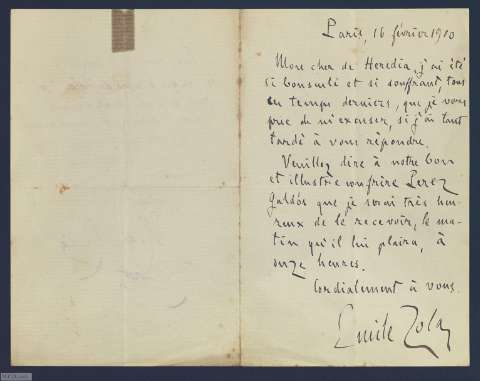 Paris, 16 février 1900
Mon cher de Heredia, j'ai été
si bousculé et si souffrant, tous
ces temps derniers, que je vous
prie de m'excuser, si j'ai tant
tardé à vous répondre.
Veuillez dire à notre bon
et illustre confrère Perez
Galdós que je serai très heu-
reux de le recevoir, le ma-
tin qu'il lui plaira, à
onze heures.
Cordialement à vous.
Emile Zola